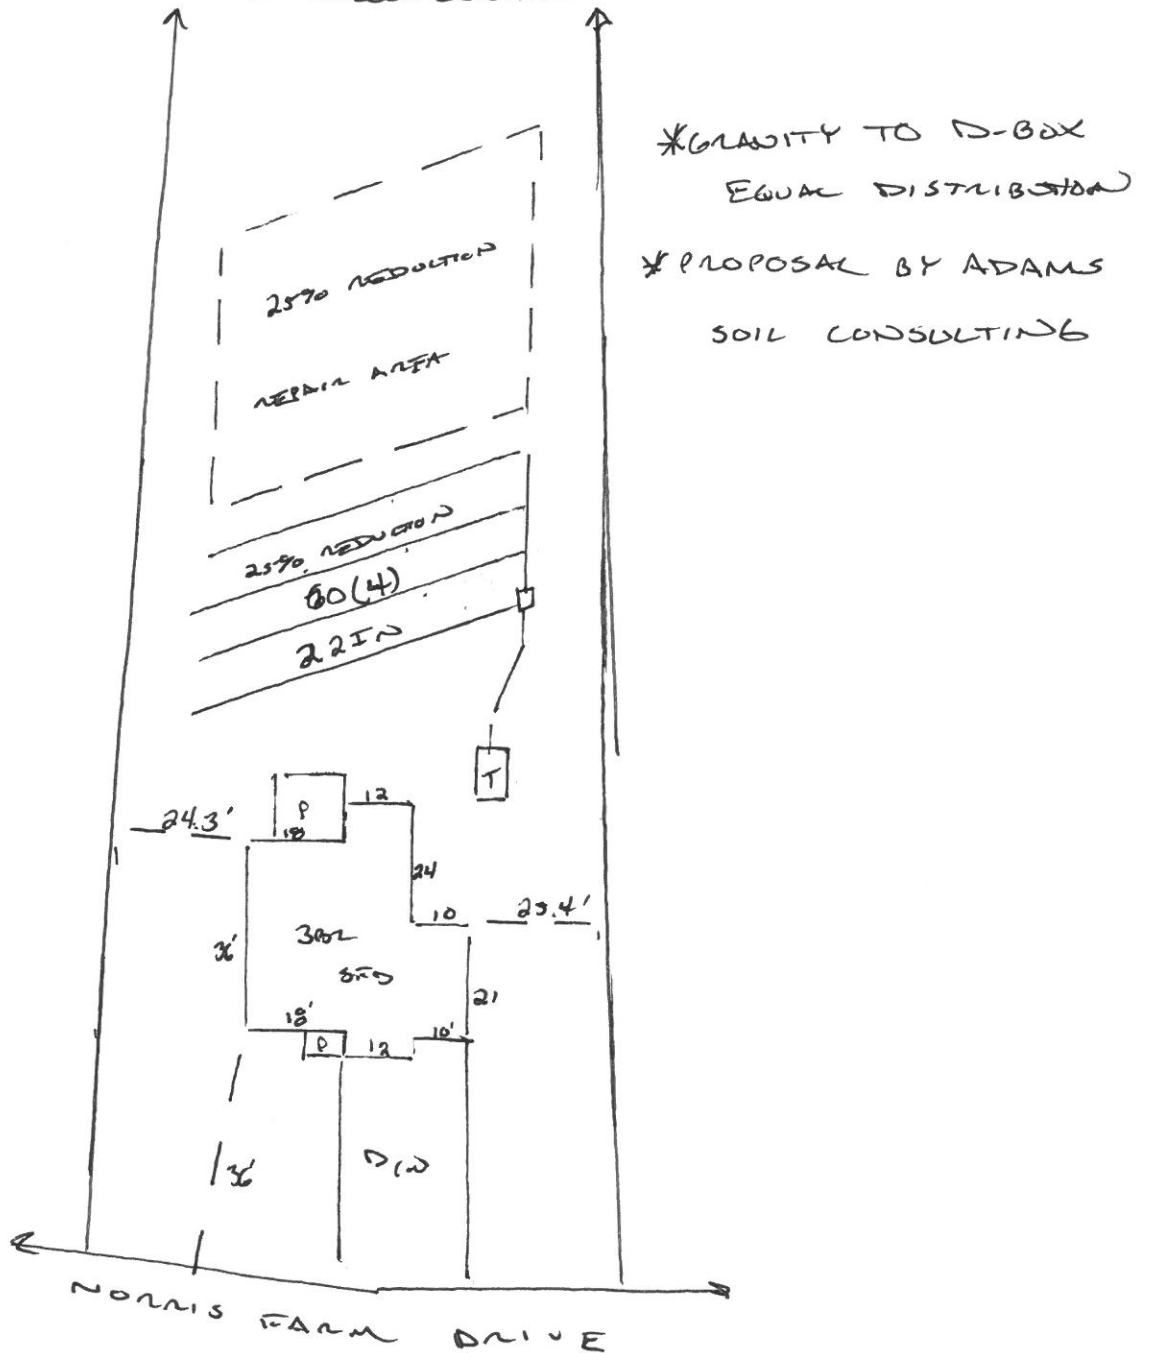 *GRAVITY TO D-BOX
EQUAL DISTRIBUTION
*PROPOSAL BY ADAMS
SOIL CONSULTING
25% REDUCTION
REPAIR AREA
25% REDUCTION
60(4)
22IN
T
P
12
24.3'
18
24
10
25.4'
36'
3BR
SFD
21
18'
P
12
10'
36'
D/W
NORRIS FARM DRIVE